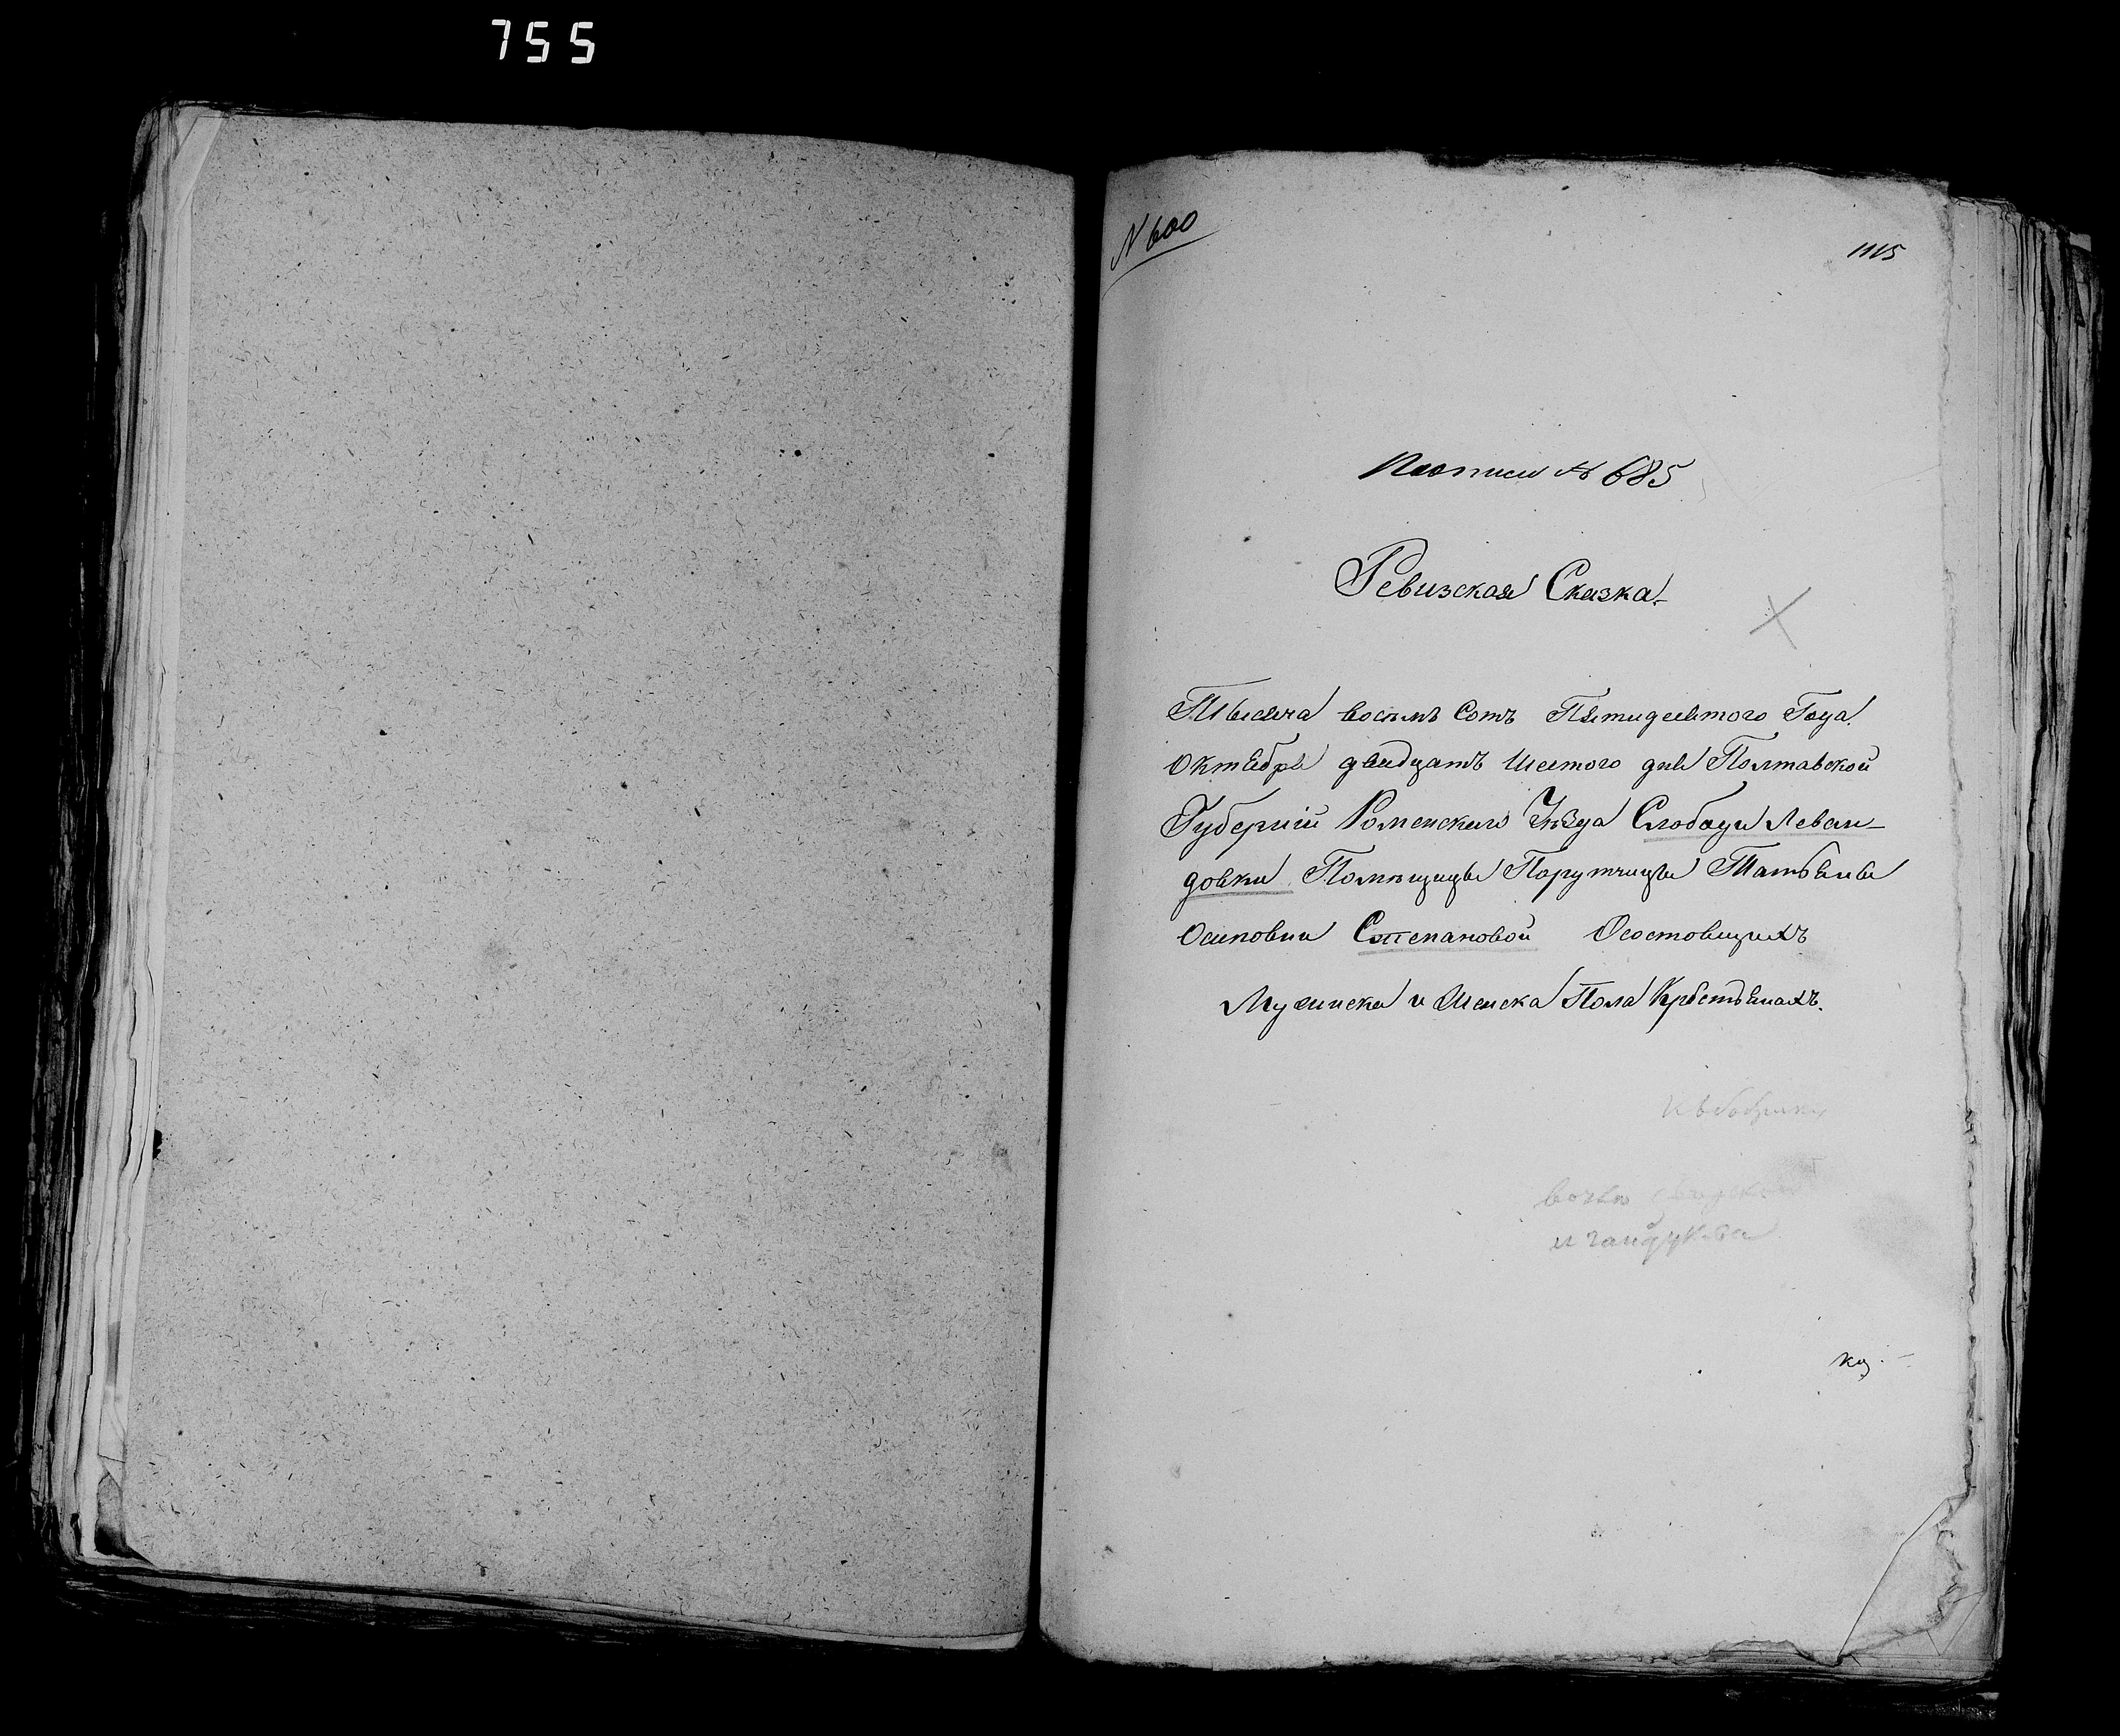 755
N 600
1115
По описи № 685
Ревизская Сказка.
Тысяча восемь Сотъ Пятидесятого Года
Октября двадцать Шестого дня Полтавской
Губерніи Роменского Уѣзда Слободи Леван-
довки Помѣщицы Порутчицы Татьяны
Осиповни Степановой О состоящихъ
Мужеска и Женска Пола Крестьянахъ.